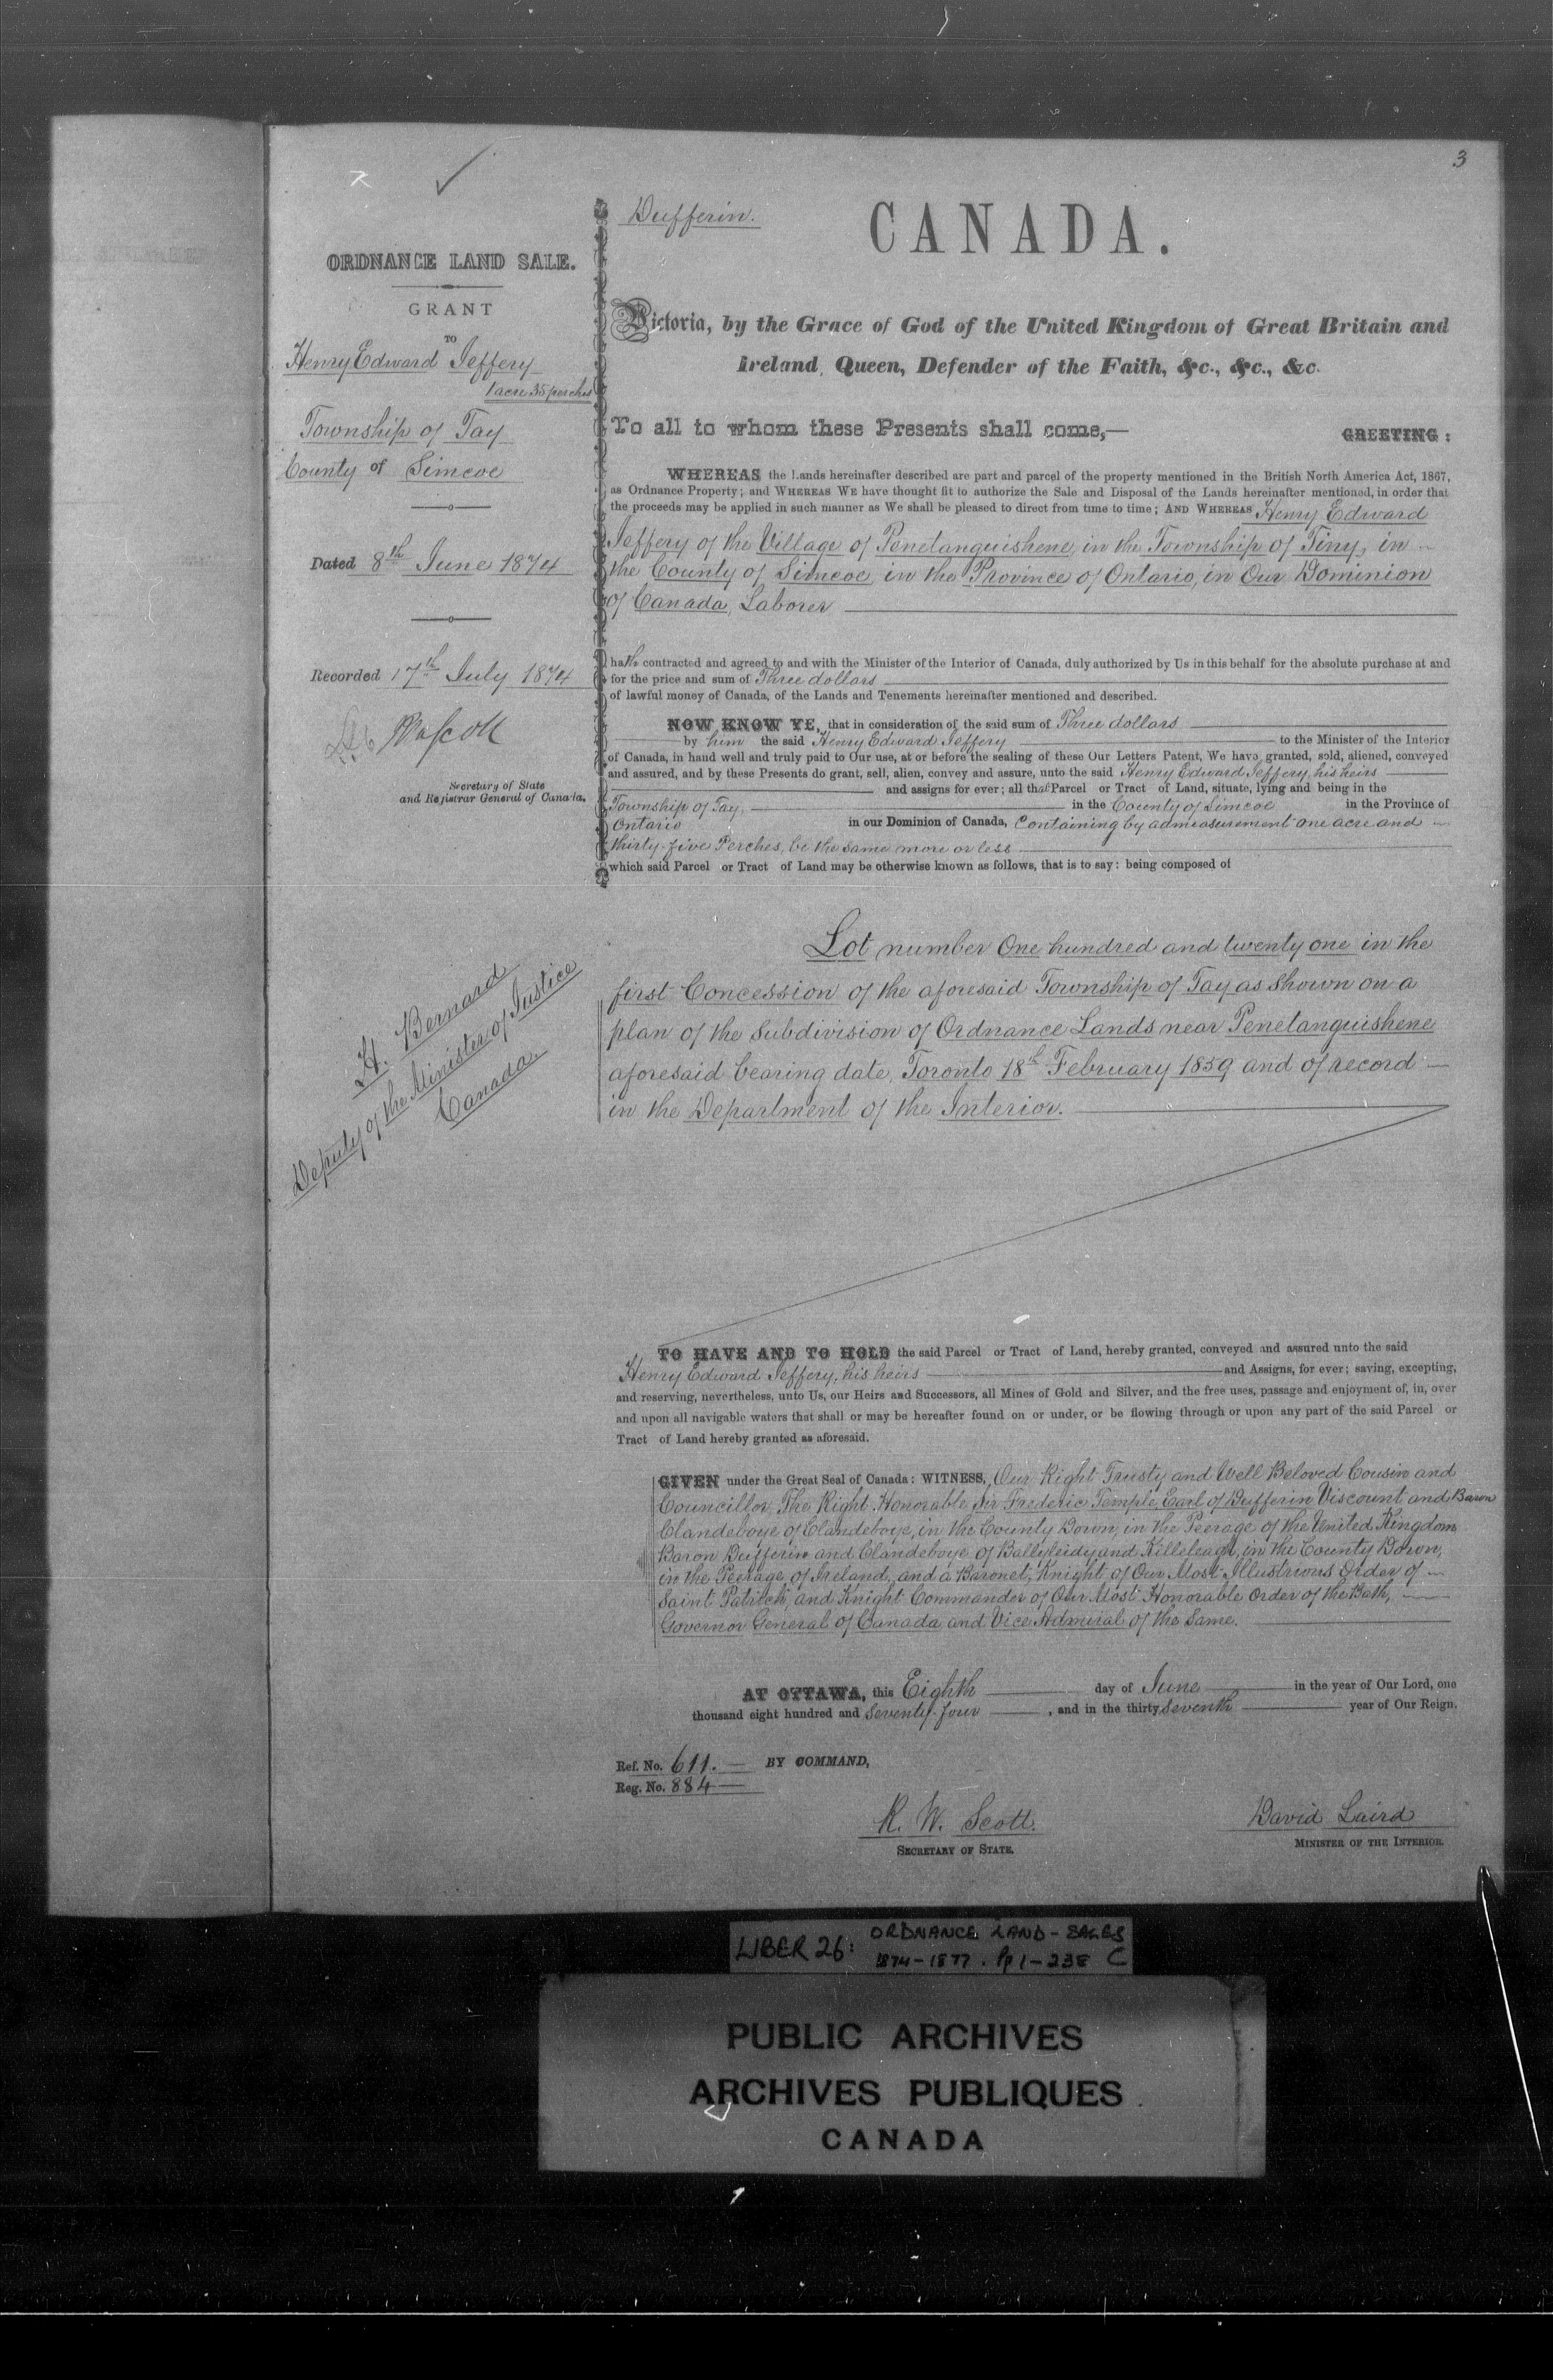 3
ORDNANCE LAND SALE.
GRANT
TO
Henry Edward Jeffery
1 acre 35 perches
Township of Tay
County of Simcoe
Dated 8th June 1874
Recorded 17th July 1874
Secretary of State
and Registrar General of Canada.
H. Bernard
Deputy of the Minister of Justice
Canada
Dufferin.
CANADA.
Victoria, by the Grace of God of the United Kingdom of Great Britain and
Ireland, Queen, Defender of the Faith, &c., &c., &c.
To all to whom these Presents shall come,—
GREETING:
WHEREAS the Lands hereinafter described are part and parcel of the property mentioned in the British North America Act, 1867,
as Ordnance Property; and WHEREAS WE have thought fit to authorize the Sale and Disposal of the Lands hereinafter mentioned, in order that
the proceeds may be applied in such manner as We shall be pleased to direct from time to time; AND WHEREAS Henry Edward
Jeffery of the Village of Penetanguishene, in the Township of Tiny, in
the County of Simcoe, in the Province of Ontario, in Our Dominion
of Canada, Laborer
hath contracted and agreed to and with the Minister of the Interior of Canada, duly authorized by Us in this behalf for the absolute purchase at and
for the price and sum of Three dollars
of lawful money of Canada, of the Lands and Tenements hereinafter mentioned and described.
NOW KNOW YE, that in consideration of the said sum of Three dollars
by him the said Henry Edward Jeffery to the Minister of the Interior
of Canada, in hand well and truly paid to Our use, at or before the sealing of these Our Letters Patent, We have granted, sold, aliened, conveyed
and assured, and by these Presents do grant, sell, alien, convey and assure, unto the said Henry Edward Jeffery, his heirs
and assigns for ever; all that Parcel or Tract of Land, situate, lying and being in the
Township of Tay, in the County of Simcoe in the Province of
Ontario in our Dominion of Canada, Containing by admeasurement one acre and
thirty-five Perches, be the same more or less
which said Parcel or Tract of Land may be otherwise known as follows, that is to say: being composed of
Lot number One hundred and twenty one in the
first Concession of the aforesaid Township of Tay as shown on a
plan of the Subdivision of Ordnance Lands near Penetanguishene
aforesaid bearing date, Toronto 18th February 1859 and of record
in the Department of the Interior.
TO HAVE AND TO HOLD the said Parcel or Tract of Land, hereby granted, conveyed and assured unto the said
Henry Edward Jeffery, his heirs and Assigns, for ever; saving, excepting,
and reserving, nevertheless, unto Us, our Heirs and Successors, all Mines of Gold and Silver, and the free uses, passage and enjoyment of, in, over
and upon all navigable waters that shall or may be hereafter found on or under, or be flowing through or upon any part of the said Parcel or
Tract of Land hereby granted as aforesaid.
GIVEN under the Great Seal of Canada: WITNESS, Our Right Trusty and Well Beloved Cousin and
Councillor, The Right Honorable Sir Frederic Temple, Earl of Dufferin Viscount and Baron
Clandeboye of Clandeboye, in the County Down, in the Peerage of the United Kingdom
Baron Dufferin and Clandeboye of Ballyleidy and Killeleagh, in the County Down,
in the Peerage of Ireland, and a Baronet, Knight of Our Most Illustrious Order of
Saint Patrick, and Knight Commander of Our Most Honorable Order of the Bath,
Governor General of Canada and Vice Admiral of the Same.
AT OTTAWA, this Eighth day of June in the year of Our Lord, one
thousand eight hundred and Seventy-four, and in the thirty Seventh year of Our Reign.
Ref. No. 611. BY COMMAND,
Reg. No. 884
R. W. Scott.
SECRETARY OF STATE.
David Laird
MINISTER OF THE INTERIOR.
LIBER 26: ORDNANCE LAND-SALES
1874-1877. Pp 1-238 C
PUBLIC ARCHIVES
ARCHIVES PUBLIQUES
CANADA